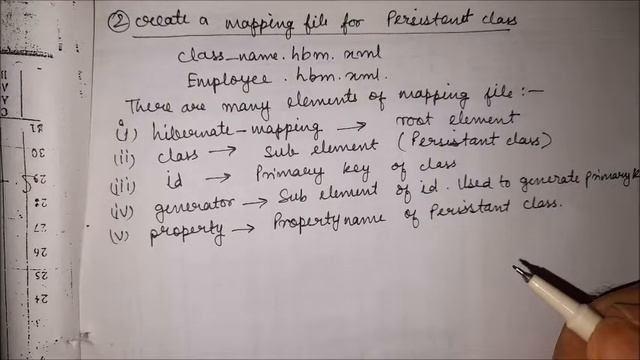 ② Create a mapping file for Persistent class
class_name.hbm.xml
Employee.hbm.xml.
There are many elements of mapping file :-
(i) hibernate-mapping → root element
(ii) class → Sub element (Persistant class)
(iii) id → Primary key of class
(iv) generator → Sub element of id. Used to generate primary k
(v) property → Property name of Persistant class.
31
30
29
28
27
26
25
24